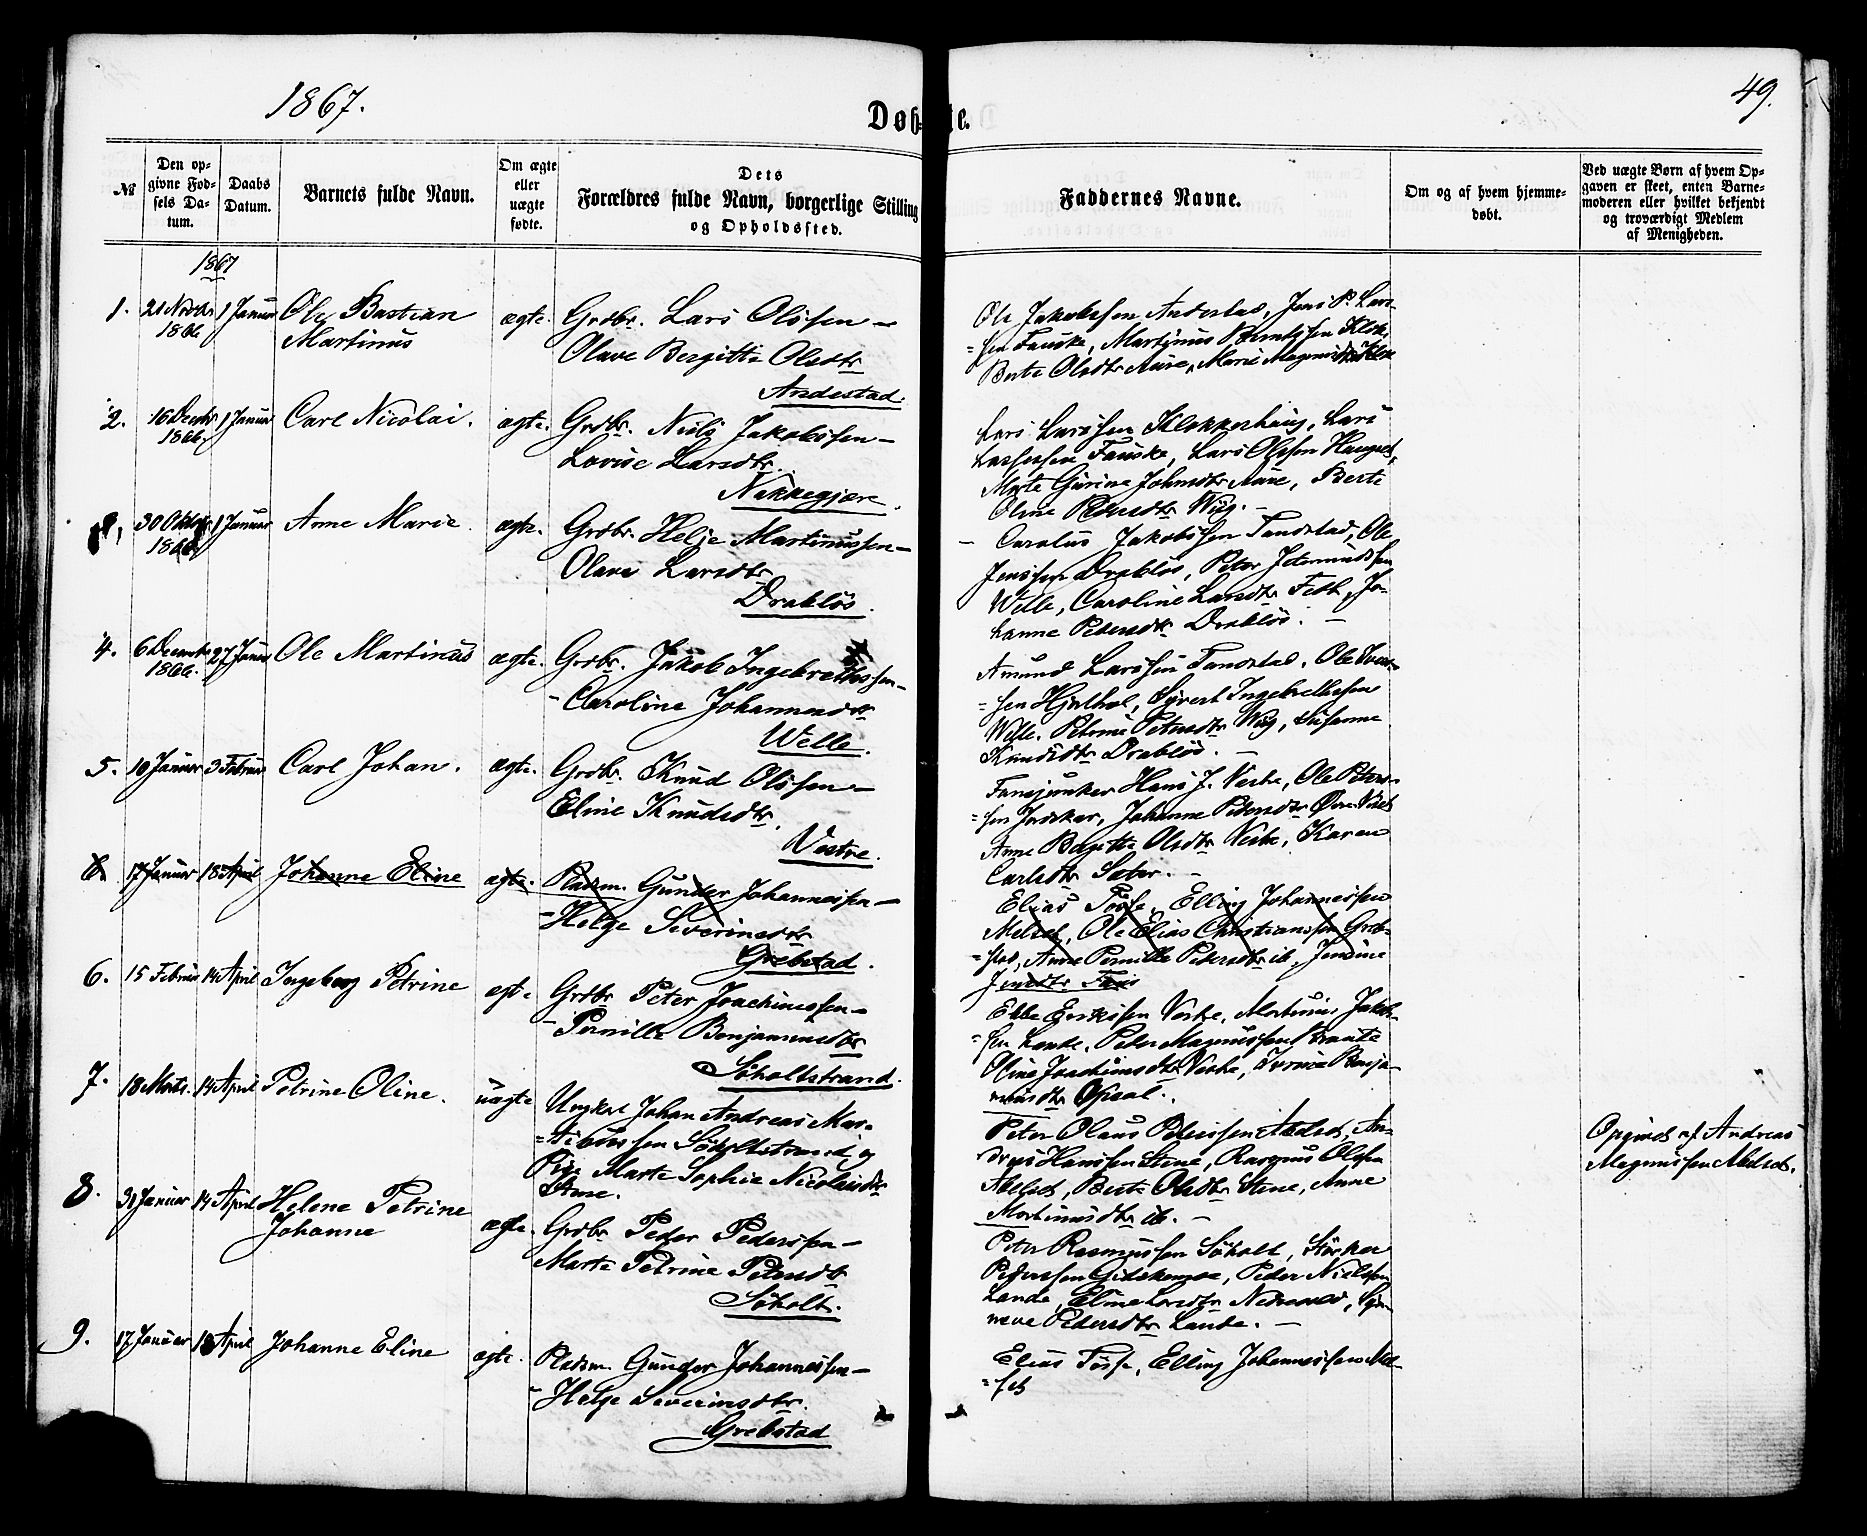 1867.
Døbte.
49.
№
Den op-
givne Fød-
sels Da-
tum.
Daabs
Datum.
Barnets fulde Navn.
Om ægte
eller
uægte
fødte.
Dets
Forældres fulde Navn, borgerlige Stilling
og Opholdssted.
Faddernes Navne.
Om og af hvem hjemme-
døbt.
Ved uægte Børn af hvem Op-
gaven er skeet, enten Barne-
moderen eller hvilket bekjendt
og troværdigt Medlem
af Menigheden.
1867
1. 1866 1 Januar Ole Bastian
Martinus
ægte.
Grdbr. Lars Olssen –
Olave Bergitte Olsdtr
Andestad.
Ole Jakobssen Andestad, Jens P. Lars-
=sen Fauske, Martinus
Berte Olsdtr Aure, Marie
2. 16 Decbr 1 Januar
1866.
Carl Nicolai.
ægte.
Grdbr. Nils Jakobssen –
Lovise Larsdtr.
Lars Larssen Klokkerhaug, Lars
Lassessen Fauske, Lars Olssen
Marte Gurine Johnsdtr Aure, Berte
Oline Pedersdtr Wiig. –
30 Oktbr 1 Januar
1866
Anne Marie
ægte.
Grdbr. Helje Martinussen –
Olave Larsdtr
Drabløs.
– Carolus Jakobssen Tandstad, Ole
Jenssen Drabløs, Peter
Welle, Caroline Larsdtr Fedt, Jo-
hanne Pedersdtr Drabløs. –
4. 6 Decembr 27 Januar
1866.
Ole Martinus
ægte.
Grdbr. Jakob Ingebretssen –
– Caroline Johannesdtr
Welle.
Amund Larssen Tandstad, Ole
=sen Hjortdal, Syvert Ingebretssen
Welle. Petrine Petersdtr Wiig, Susanne
Knudsdtr Drabløs. –
5. 10 Januar 3 Februar
Carl Johan.
ægte.
Grdbr. Knud Olssen –
Eline Knudsdtr.
Vestre.
Fanejunker Hans J. Vestre, Ole Peters-
=sen Johanne Pedersdtr
Anne Bergitte Olsdtr Vestre, Karen
Carlsdtr –
6. 17 Januar 18 April
Johanne Eline
ægte.
Pladsm. Gunder Johannessen –
– Helge Severinsdtr
Grebstad.
Elias Tosse, Elling Johannessen
Melseth, Ole Elias Christianssen Greb-
=stad, Anne Pernille Pedersdtr ib, Jensine
Jensdtr
6. 15 Februar 14 April
Ingeborg Petrine
ægte
Grdbr Peter Joachimssen –
– Pernille Benjaminsdtr
Søholtstrand.
Ebbe Erikssen Vestre, Martinus Jakob-
=sen Lande. Peder Magnussen
Oline Joachimsdtr Vestre, Benja-
minsdtr Opsal.
7. 18 Marts. 14 April
Petrine Oline.
uægte
Ungkal Johan Andreas Mar-
=tinussen Søholtstrand og
Pige Marte Sophie Nicolaisdtr
Stene.
Peter Olaus Pederssen Abelset, An-
dreas Hanssen Stene, Rasmus Olssen
Abelset, Berte Olsdtr Stene, Anne
Martinusdtr ib. –
Opgivet af Andreas
Magnussen Abelset.
8. 31 Januar 14 April
Helene Petrine
Johanne
ægte.
Grdbr Peder Pederssen –
Marte Petrine Petersdtr
Søholt.
Peter Rasmussen Søholt,
Pederssen Peder Nielssen
Lande, Eline Larsdtr
Pedersdtr Lande. –
9. 17 Januar 18 April
Johanne Eline
ægte.
Pladsm. Gunder Johannessen –
– Helge Severinsdtr.
Grebstad
Elias Tosse, Elling Johannessen Mel-
=seth